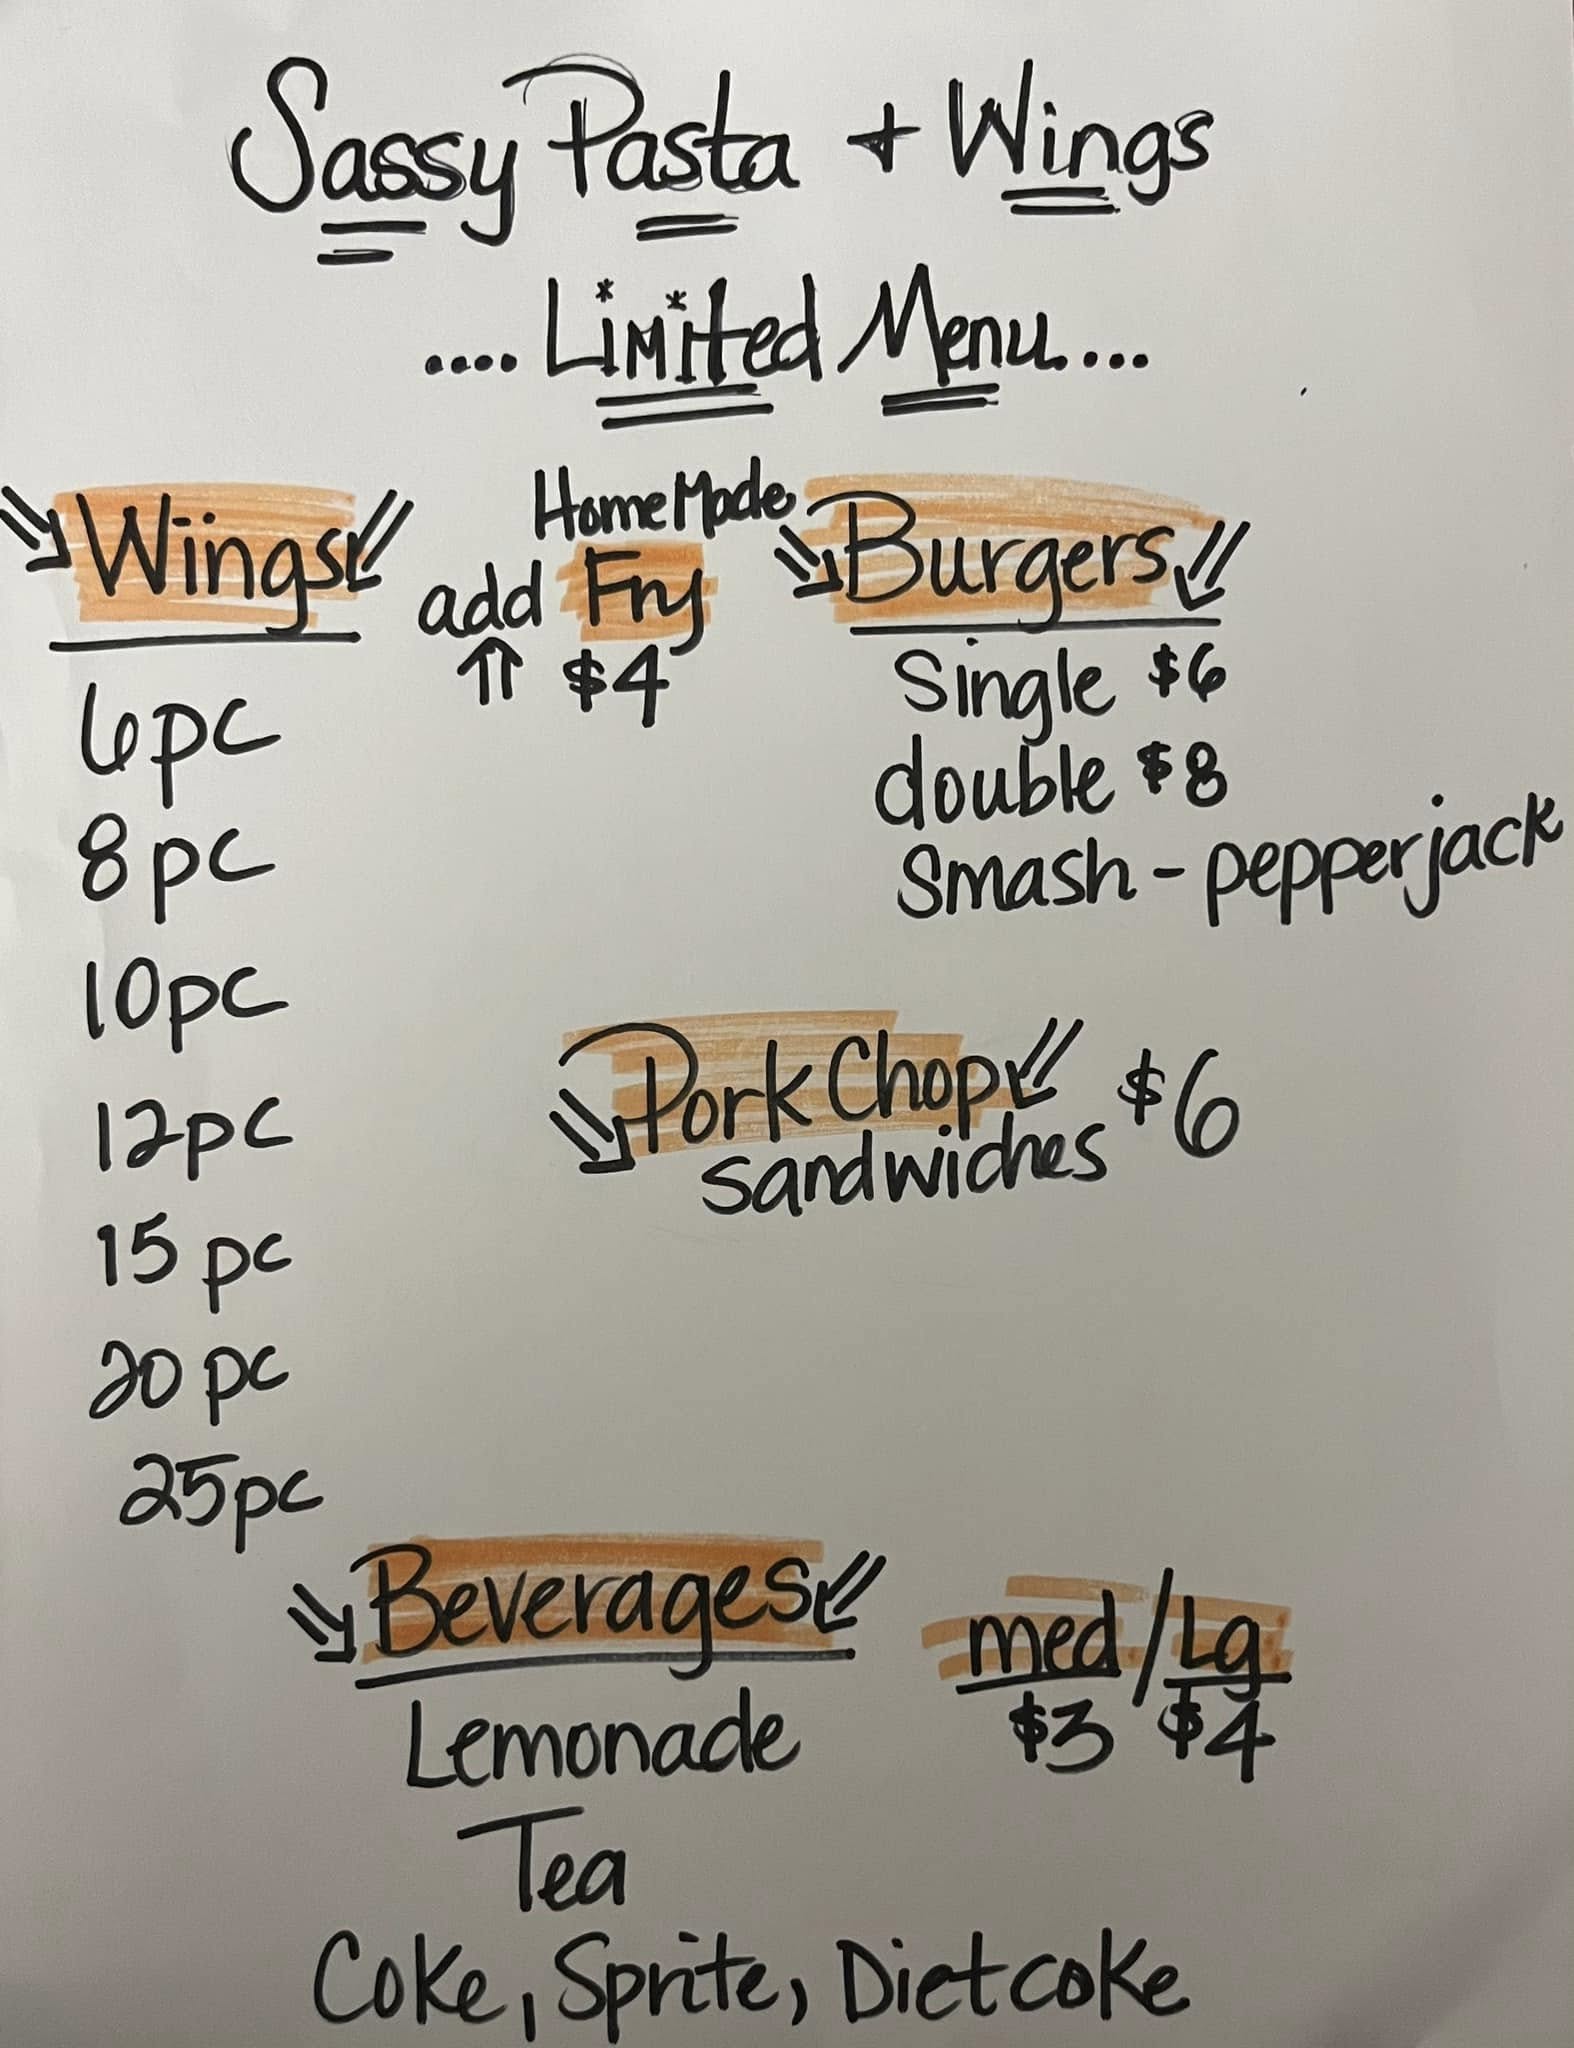 Sassy Pasta + Wings
.... Limited Menu....
Wings
6pc
8pc
10pc
12pc
15 pc
20 pc
25pc
HomeMade
add Fry
$4
Burgers
Single $6
double $8
Smash - pepperjack
Pork Chop $6
sandwiches
Beverages
med / Lg
$3 $4
Lemonade
Tea
Coke, Sprite, Diet coke